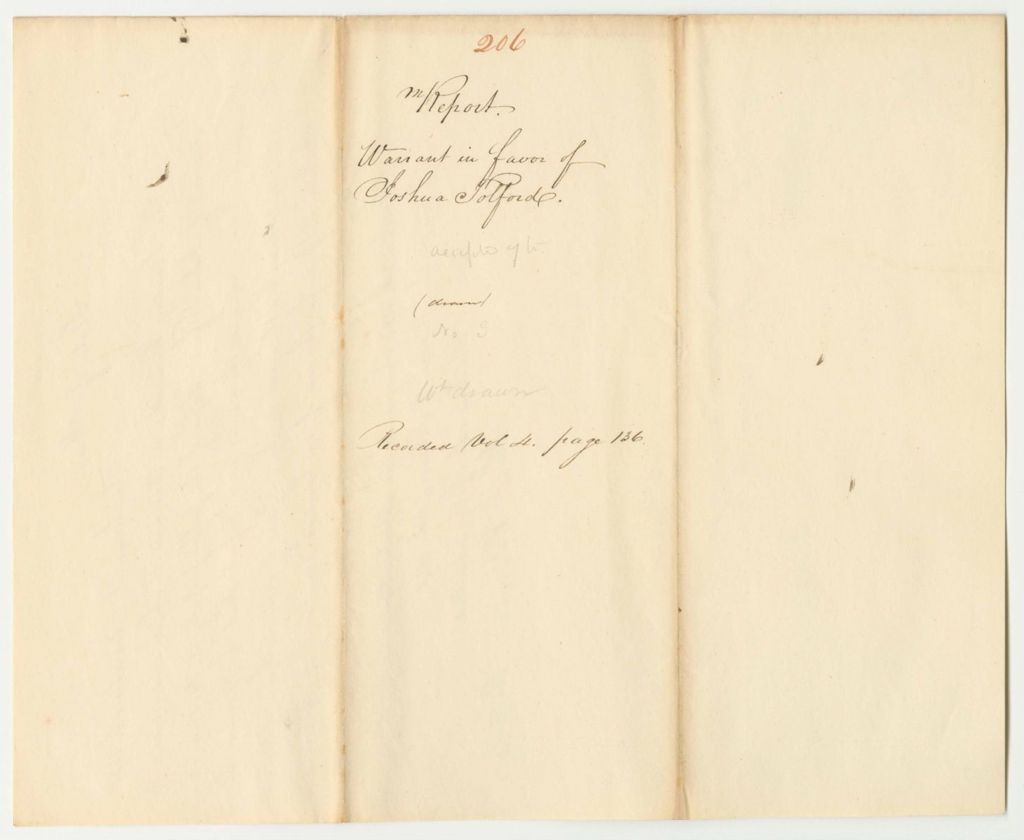 206
m Report.
Warrant in favor of
Joshua Tolford.
(drawn)
No. 3
Wt drawn
Recorded Vol 4. page 136.